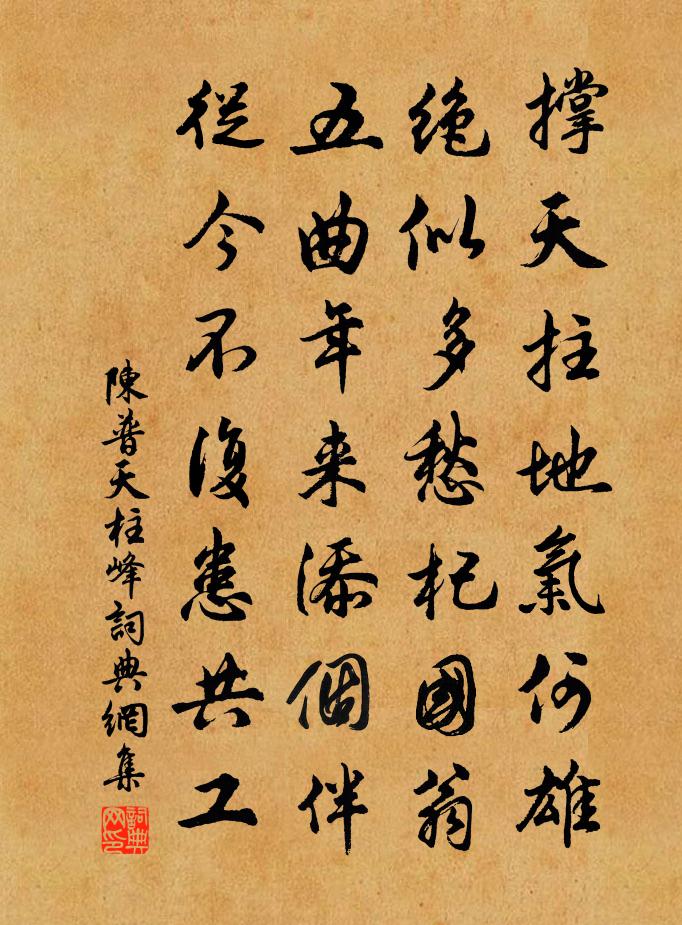 撑天拄地氣何雄
絶似多愁杞國翁
五曲年来添個伴
從今不復患共工
陳普天柱峰詞典網集
詞典网印